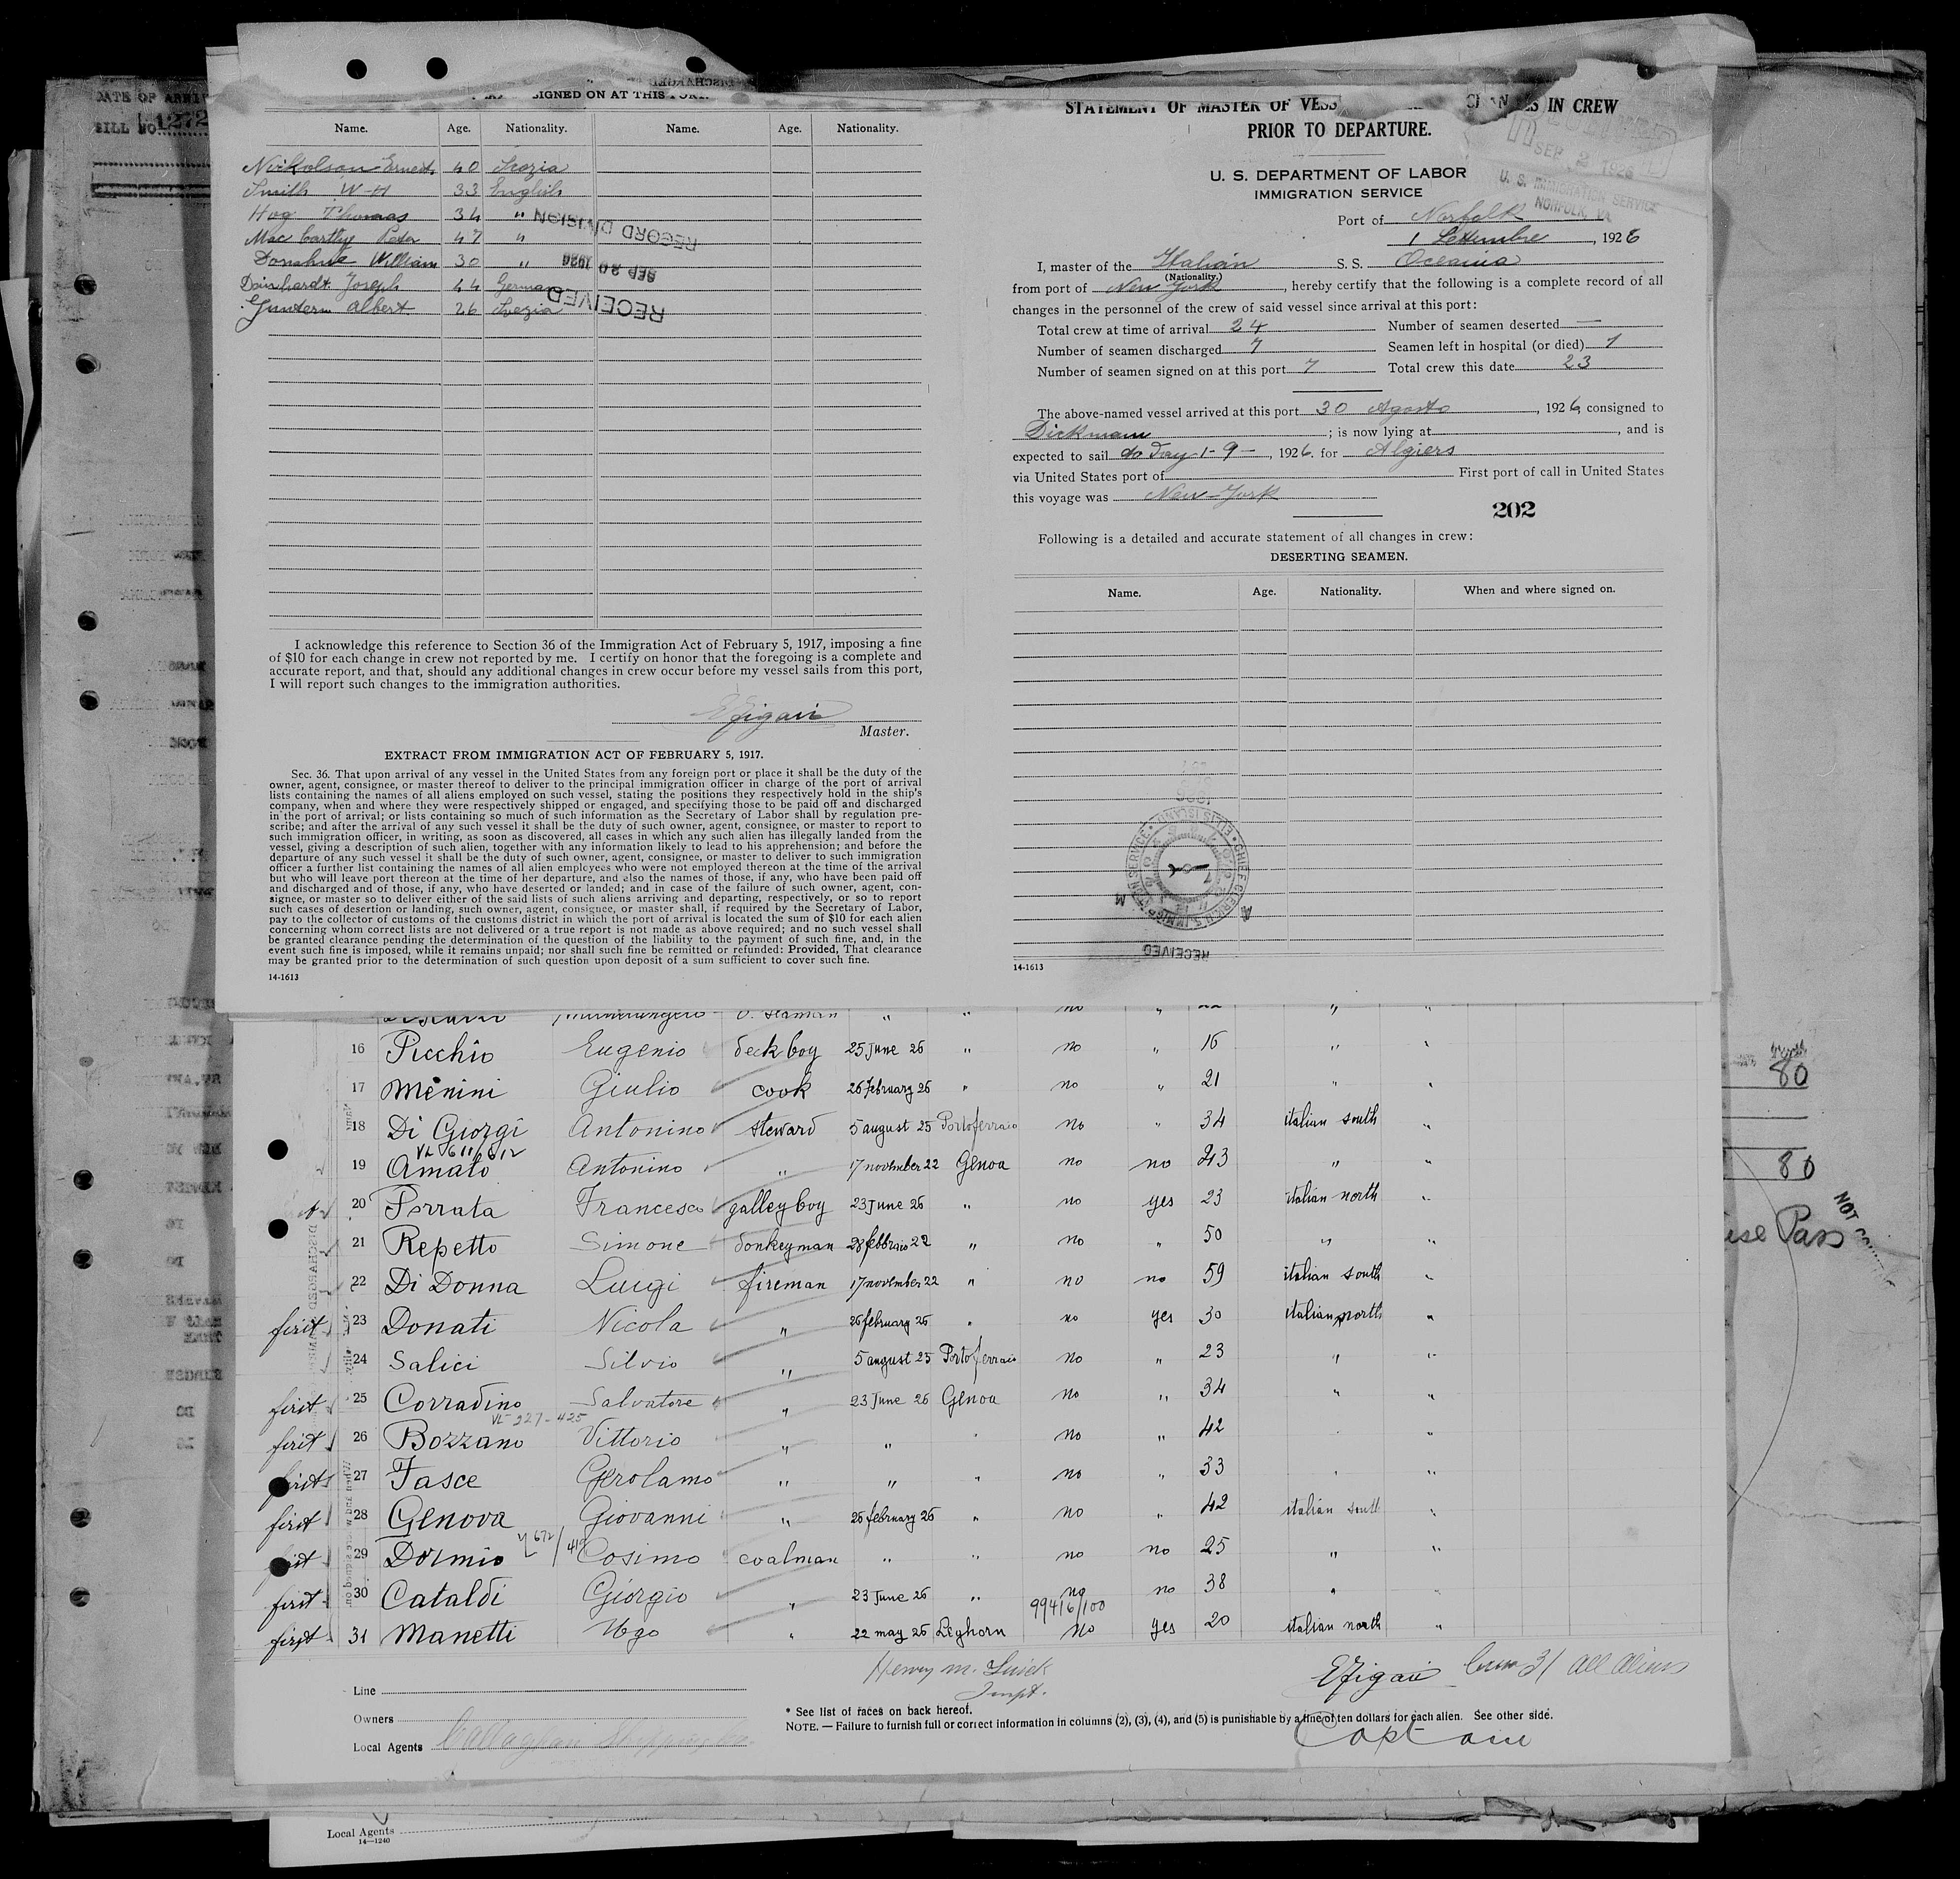 DATE OF ARRI
BILL NO. 1272
SIGNED ON AT THIS PORT.
Name. Age. Nationality. Name. Age. Nationality.
Nickolson Ernest 40 Scozia
Smith W-H 33 English
Hog Thomas 34 "
Mac Carthy Peter 47 "
Donahue William 30 "
Dainhardt Joseph 44 German
Gunderm Albert 26 Svezia
RECORD DIVISION
SEP 20 1926
RECEIVED
I acknowledge this reference to Section 36 of the Immigration Act of February 5, 1917, imposing a fine
of $10 for each change in crew not reported by me. I certify on honor that the foregoing is a complete and
accurate report, and that, should any additional changes in crew occur before my vessel sails from this port,
I will report such changes to the immigration authorities.
Efigari
Master.
EXTRACT FROM IMMIGRATION ACT OF FEBRUARY 5, 1917.
Sec. 36. That upon arrival of any vessel in the United States from any foreign port or place it shall be the duty of the
owner, agent, consignee, or master thereof to deliver to the principal immigration officer in charge of the port of arrival
lists containing the names of all aliens employed on such vessel, stating the positions they respectively hold in the ship's
company, when and where they were respectively shipped or engaged, and specifying those to be paid off and discharged
in the port of arrival; or lists containing so much of such information as the Secretary of Labor shall by regulation pre-
scribe; and after the arrival of any such vessel it shall be the duty of such owner, agent, consignee, or master to report to
such immigration officer, in writing, as soon as discovered, all cases in which any such alien has illegally landed from the
vessel, giving a description of such alien, together with any information likely to lead to his apprehension; and before the
departure of any such vessel it shall be the duty of such owner, agent, consignee, or master to deliver to such immigration
officer a further list containing the names of all alien employees who were not employed thereon at the time of the arrival
but who will leave port thereon at the time of her departure, and also the names of those, if any, who have been paid off
and discharged and of those, if any, who have deserted or landed; and in case of the failure of such owner, agent, con-
signee, or master so to deliver either of the said lists of such aliens arriving and departing, respectively, or so to report
such cases of desertion or landing, such owner, agent, consignee, or master shall, if required by the Secretary of Labor,
pay to the collector of customs of the customs district in which the port of arrival is located the sum of $10 for each alien
concerning whom correct lists are not delivered or a true report is not made as above required; and no such vessel shall
be granted clearance pending the determination of the question of the liability to the payment of such fine, and, in the
event such fine is imposed, while it remains unpaid; nor shall such fine be remitted or refunded: Provided, That clearance
may be granted prior to the determination of such question upon deposit of a sum sufficient to cover such fine.
14-1613
STATEMENT OF MASTER OF VESS CHANGES IN CREW
PRIOR TO DEPARTURE.
SEP 2 1926
U. S. IMMIGRATION SERVICE
NORFOLK, VA.
U. S. DEPARTMENT OF LABOR
IMMIGRATION SERVICE
Port of Norfolk
1 Settembre, 1926
I, master of the Italian S. S. Oceania
(Nationality.)
from port of New York, hereby certify that the following is a complete record of all
changes in the personnel of the crew of said vessel since arrival at this port:
Total crew at time of arrival 24 Number of seamen deserted —
Number of seamen discharged 7 Seamen left in hospital (or died) 1
Number of seamen signed on at this port 7 Total crew this date 23
The above-named vessel arrived at this port 30 Agosto, 1926, consigned to
Dickmann; is now lying at, and is
expected to sail to Day 1-9-, 1926. for Algiers
via United States port of First port of call in United States
this voyage was New-York
202
Following is a detailed and accurate statement of all changes in crew:
DESERTING SEAMEN.
Name. Age. Nationality. When and where signed on.
RECEIVED
14-1613
16 Picchio Eugenio deck boy 25 June 26 " no " 16 " "
17 Menini Giulio cook 26 February 26 " no " 21 " "
18 Di Giorgi Antonino steward 5 august 25 Portoferraio no " 34 italian south "
19 Amato Antonino " 17 november 22 Genoa no no 43 " "
20 Perrata Francesco galley boy 23 June 26 " no yes 23 italian north "
21 Repetto Simone donkeyman 28 febbraio 22 " no " 50 " "
22 Di Donna Luigi fireman 17 november 22 " no no 59 italian south "
first 23 Donati Nicola " 26 february 26 " no yes 30 italian north "
24 Salici Silvio " 5 august 25 Portoferraio no " 23 " "
first 25 Corradino Salvatore " 23 June 26 Genoa no " 34 " "
VL 227-425
first 26 Bozzano Vittorio " " " no " 42 " "
first 27 Fasce Gerolamo " " " no " 33 " "
first 28 Genova Giovanni " 26 february 26 " no " 42 italian south "
first 29 Dormio Cosimo coalman " " no no 25 " "
first 30 Cataldi Giorgio " 23 June 26 " no no 38 " "
99416/100
first 31 Manetti Ugo " 22 may 26 Leghorn no yes 20 italian north "
Henry M. Quick
Inspt.
Efigari Crew 31 All Aliens
Captain
Line
Owners
Local Agents Callaghan Shipping Co
* See list of races on back hereof.
NOTE. — Failure to furnish full or correct information in columns (2), (3), (4), and (5) is punishable by a fine of ten dollars for each alien. See other side.
80
80
Pass
NOT
Local Agents
14—1240